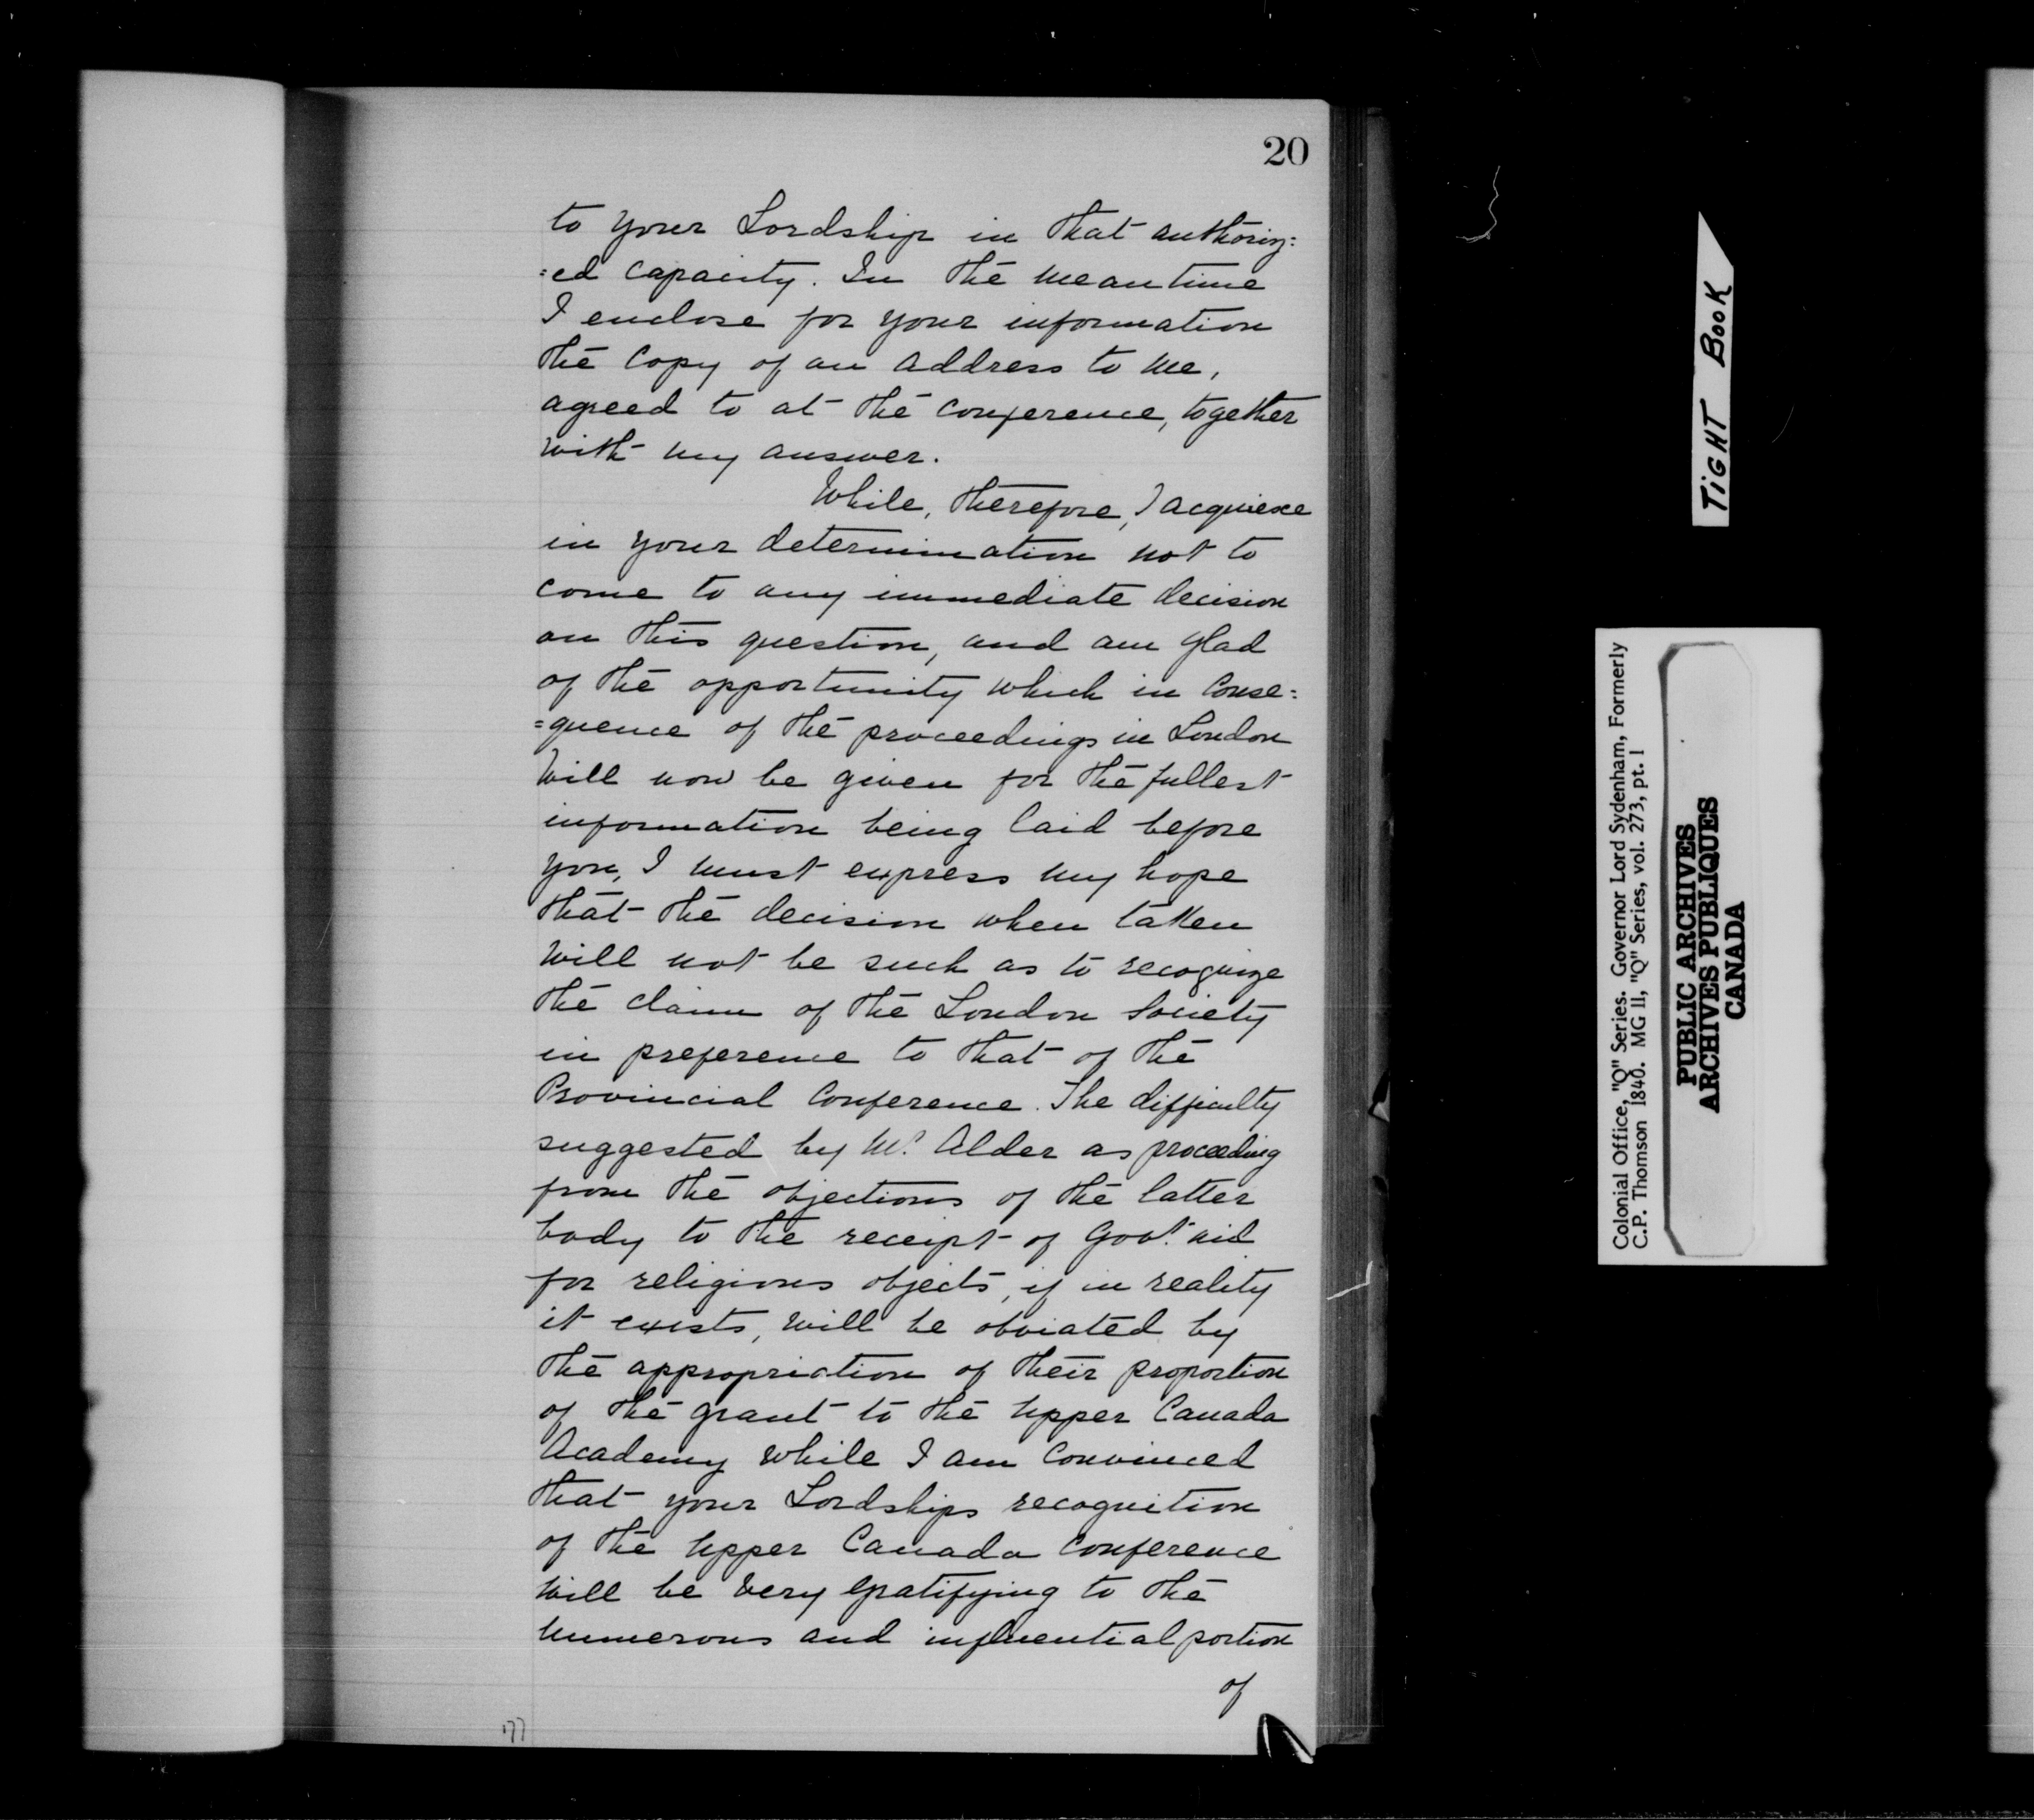 20
to your Lordship in that authoriz=
=ed capacity. In the meantime
I enclose for your information
the Copy of an Address to me,
agreed to at the conference, together
with my answer.
While, therefore, I acquiesce
in your determination not to
come to any immediate decision
on this question, and am glad
of the opportunity which in conse=
=quence of the proceedings in London
will now be given for the fullest
information being laid before
you, I must express my hope
that the decision when taken
will not be such as to recognize
the claim of the London Society
in preference to that of the
Provincial Conference. The difficulty
suggested by Mr. Alder as proceeding
from the objections of the latter
body to the receipt of Govt. aid
for religious objects, if in reality
it exists, will be obviated by
the appropriation of their proportion
of the grant to the Upper Canada
Academy while I am convinced
that your Lordships recognition
of the Upper Canada Conference
will be very gratifying to the
numerous and influential portion
of
177
TIGHT BOOK
Colonial Office, "Q" Series. Governor Lord Sydenham, Formerly
C.P. Thomson 1840. MG 11, "Q" Series, vol. 273, pt. 1
PUBLIC ARCHIVES
ARCHIVES PUBLIQUES
CANADA